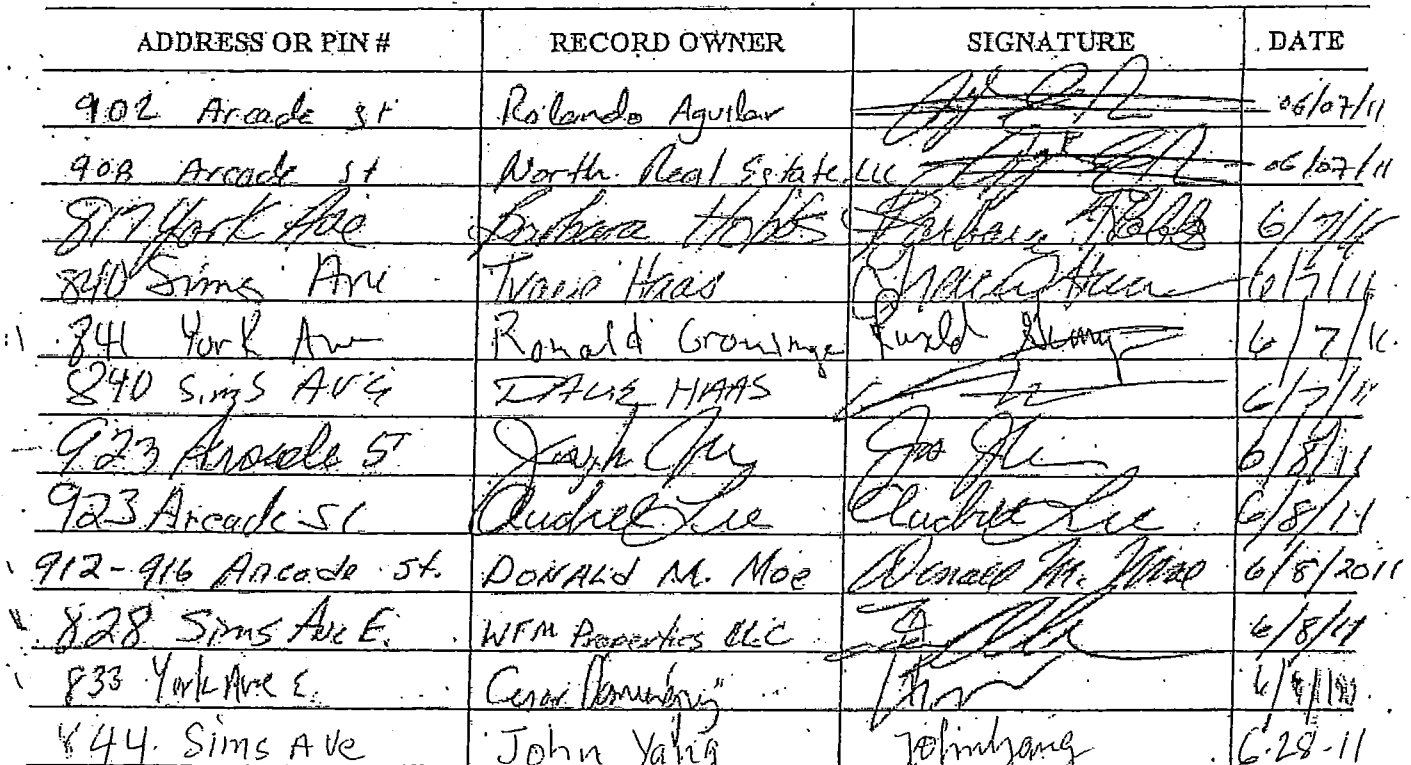 ADDRESS OR PIN # RECORD OWNER SIGNATURE DATE
902 Arcade St Rolando Aguilar 06/07/11
908 Arcade St North Real Estate LLC 06/07/11
817 York Ave Barbara Hobbs Barbara Hobbs 6/7/11
840 Sims Ave Haas 6/7/11
841 York Ave Ronald Ronald 6/7/11
840 Sims Ave HAAS 6/7/11
923 Arcade St 6/8/11
923 Arcade St Audree Lee Audree Lee 6/8/11
912-916 Arcade St. DONALD M. Moe Donald M. Moe 6/8/2011
828 Sims Ave E. WFM Properties LLC 6/8/11
833 York Ave E. Cesar
844 Sims Ave John Yang John Yang 6-28-11